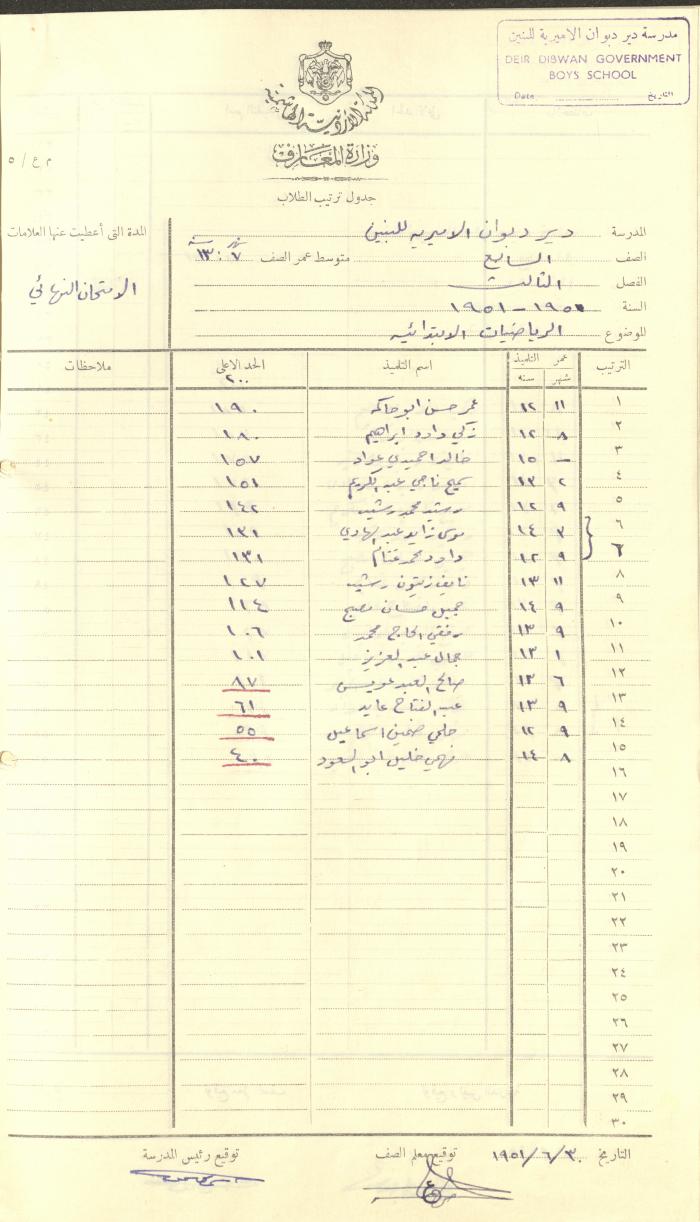 مدرسة دير دبوان الاميرية للبنين
DEIR DIBWAN GOVERNMENT
BOYS SCHOOL
Date التاريخ
المملكة الأردنية الهاشمية
وزارة المعارف
م ع / ٥
جدول ترتيب الطلاب
المدرسة دير ديوان الاميريه للبنين
المدة التى أعطيت عنها العلامات
الصف السابع متوسط عمر الصف ٧ شهر : ١٣ سنة
الفصل الثالث
الامتحان النهائي
السنة ١٩٥٠ - ١٩٥١
الموضوع الرياضيات الابتدائيه
الترتيب عمر التلميذ اسم التلميذ الحد الاعلى ملاحظات
شهر سنه ٢٠٠
١ ١١ ١٢ عمر حسن ابو حاكمه ١٩٠
٢ ٨ ١٢ زكي داود ابراهيم ١٨٠
٣ – ١٥ خالد احميدي عواد ١٥٧
٤ ٢ ١٣ سميح ناجي عبد الكريم ١٥١
٥ ٩ ١٢ رشيد محمد رشيد ١٤٢
٦ ٣ ١٤ موسى زايد عبد الهادي ١٣١
٦ ٩ ١٢ داود محمد غنام ١٣١
٨ ١١ ١٣ نايف زيتون رشيد ١٢٧
٩ ٩ ١٤ جميل حسان مصبح ١١٤
١٠ ٩ ١٣ رفقي الحاج محمد ١٠٦
١١ ١ ١٣ جمال عبد العزيز ١٠١
١٢ ٦ ١٣ صالح العبد عويس ٨٧
١٣ ٩ ١٣ عبد الفتاح عايد ٦١
١٤ ٩ ١٢ حلمي اسماعيل ٥٥
١٥ ٨ ١٤ فهمي خليل ابو السعود ٤٠
١٦
١٧
١٨
١٩
٢٠
٢١
٢٢
٢٣
٢٤
٢٥
٢٦
٢٧
٢٨
٢٩
٣٠
التاريخ ٣٠/٦/١٩٥١ توقيع معلم الصف توقيع رئيس المدرسة